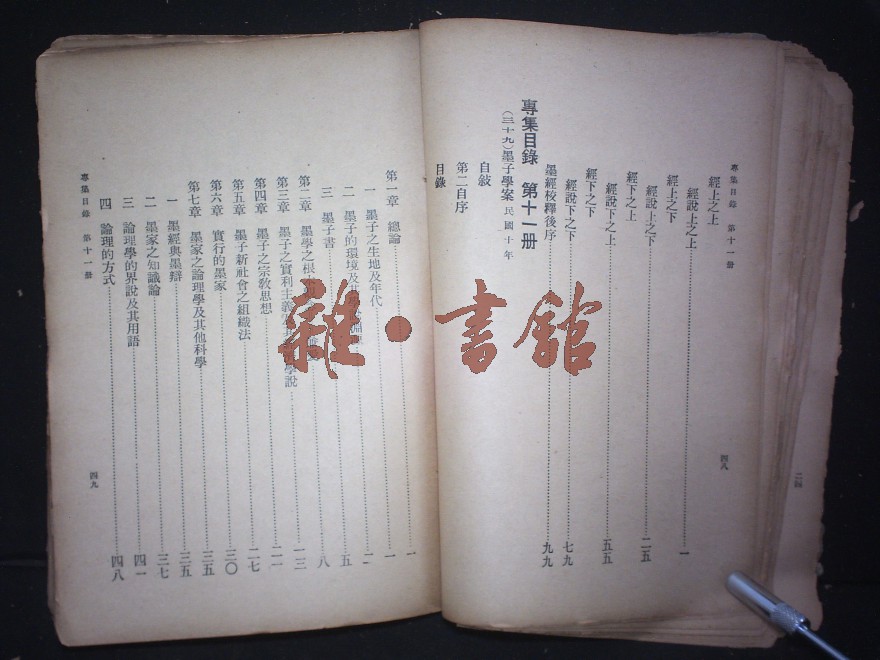 專集目錄 第十一冊
四八
經上之上
經說上之上……一
經上之下
經說上之下……二五
經下之上
經說下之上……五五
經下之下
經說下之下……七九
墨經校釋後序……九九
專集目錄 第十一冊
(三十九)墨子學案 民國十年
自敍
第二自序
目錄
第一章 總論……一
一 墨子之生地及年代……一
二 墨子的環境及其
三 墨子書……八
第二章 墨學之根
第三章 墨子之實利主義 學說……一三
第四章 墨子之宗教思想……二一
第五章 墨子新社會之組織法……二七
第六章 實行的墨家……三〇
第七章 墨家之論理學及其他科學……三五
一 墨經與墨辯……三五
二 墨家之知識論……三七
三 論理學的界說及其用語……四一
四 論理的方式……四八
專集目錄 第十一冊
四九
雜·書館